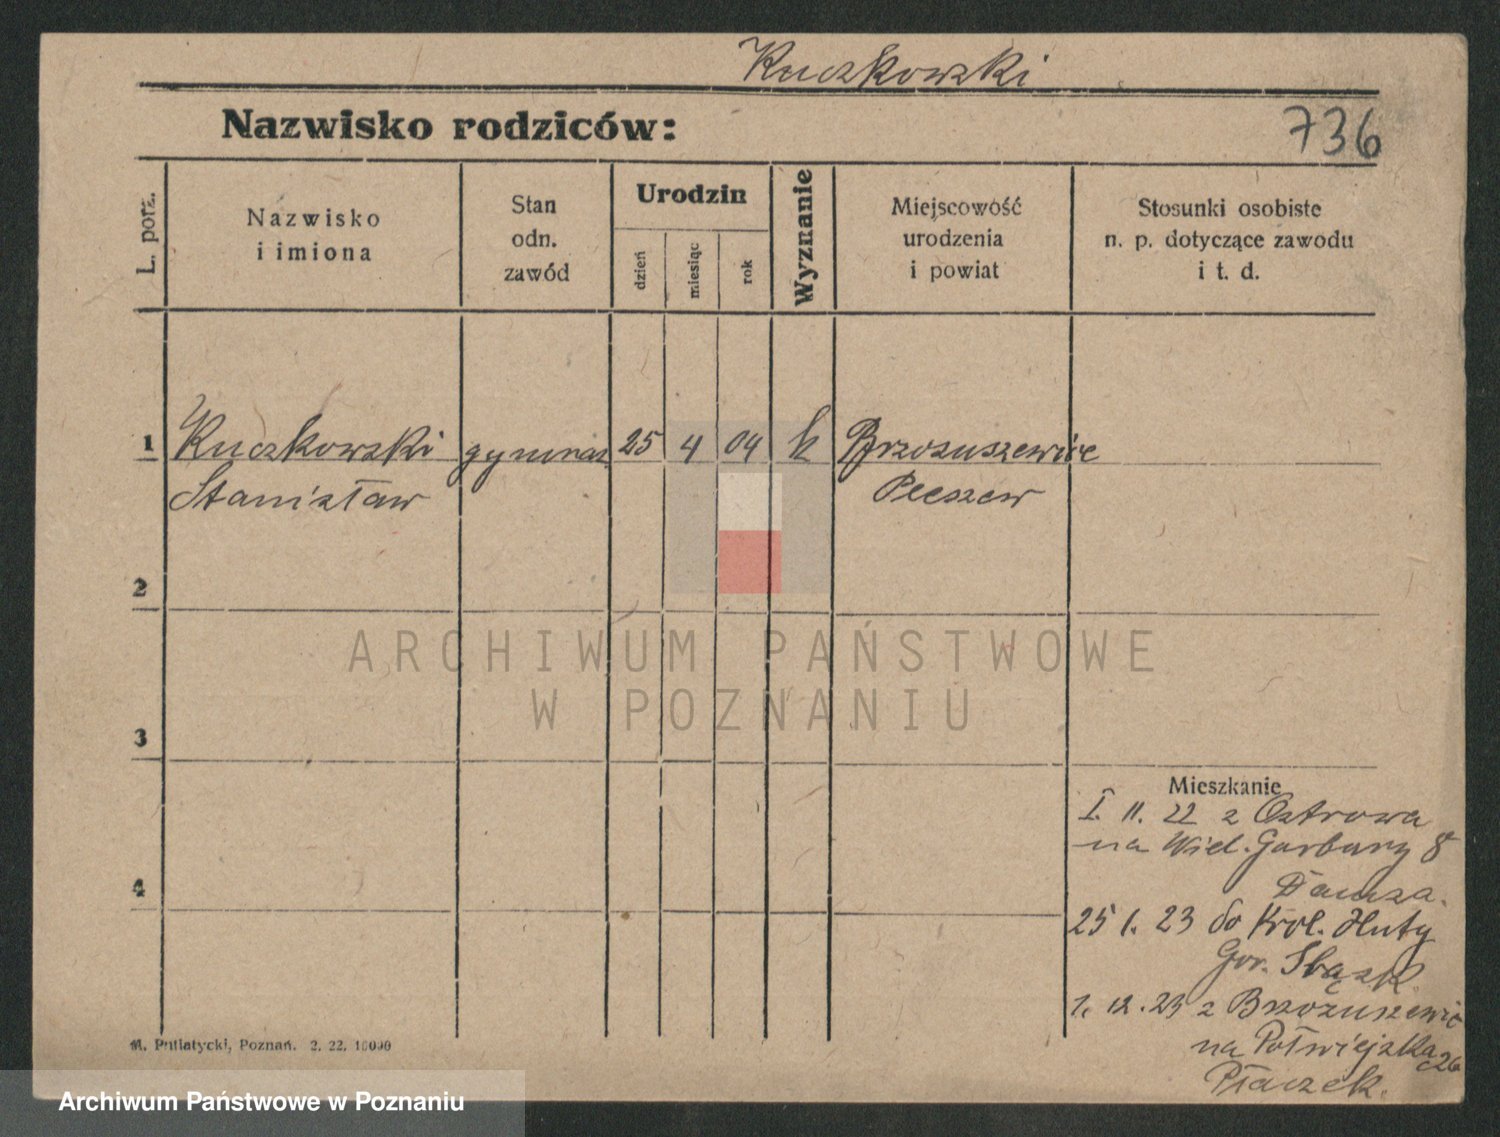 Kuczkowski
Nazwisko rodziców:
736
L. porz.
Nazwisko
i imiona
Stan
odn.
zawód
Urodzin
dzień
miesiąc
rok
Wyznanie
Miejscowość
urodzenia
i powiat
Stosunki osobiste
n. p. dotyczące zawodu
i t. d.
1 Kuczkowski gymnaz 25 4 04 k Brzozuszewice
Stanisław Pleszew
2
ARCHIWUM PAŃSTWOWE
W POZNANIU
3
Mieszkanie
1. 11. 22 z Ostrowa
na Wiel. Garbary 8
4
25 1. 23 do Król. Huty
Gor. Śląsk.
1. 12. 23 z Brzozuszewic
na Półwiejska 26
Płaczek.
M. Putiatycki, Poznań. 2. 22. 10000
Archiwum Państwowe w Poznaniu